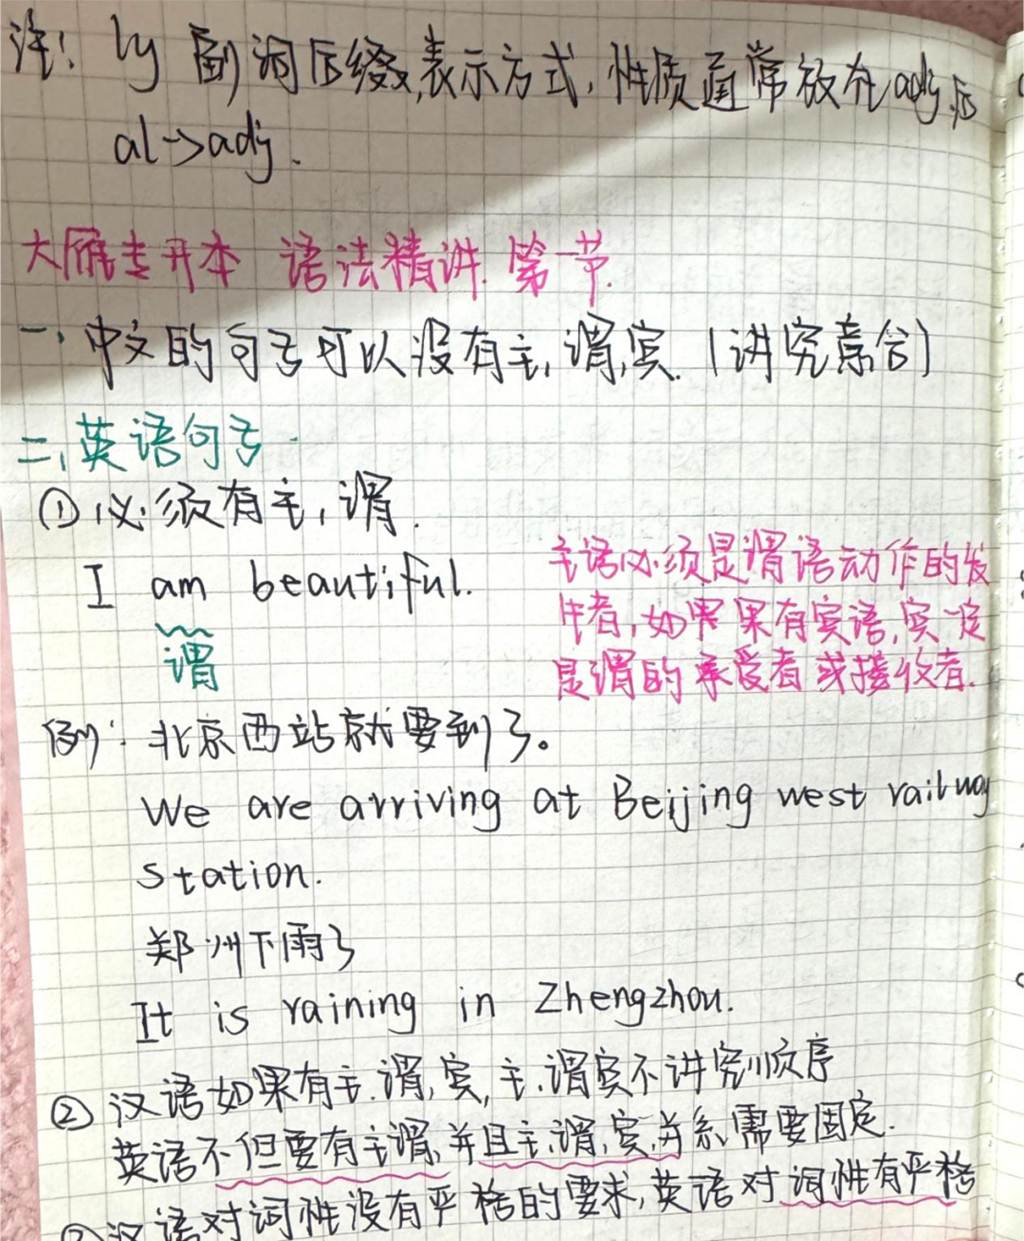 注: ly 副词后缀,表示方式,性质通常放在adj后
al->adj.
大雁专升本 语法精讲.第一节.
一、中文的句子可以没有主,谓,宾.(讲究意合)
二,英语句子.
①必须有主,谓.
I am beautiful.
谓
主语必须是谓语动作的发
作者,如果果有宾语,宾一定
是谓的承受者或接收者.
例: 北京西站就要到了。
We are arriving at Beijing west railway
station.
郑州下雨了
It is raining in Zhengzhou.
② 汉语如果有主.谓,宾,主.谓宾不讲究顺序
英语不但要有主谓,并且主,谓,宾,关系需要固定.
汉语对词性没有严格的要求,英语对词性有严格